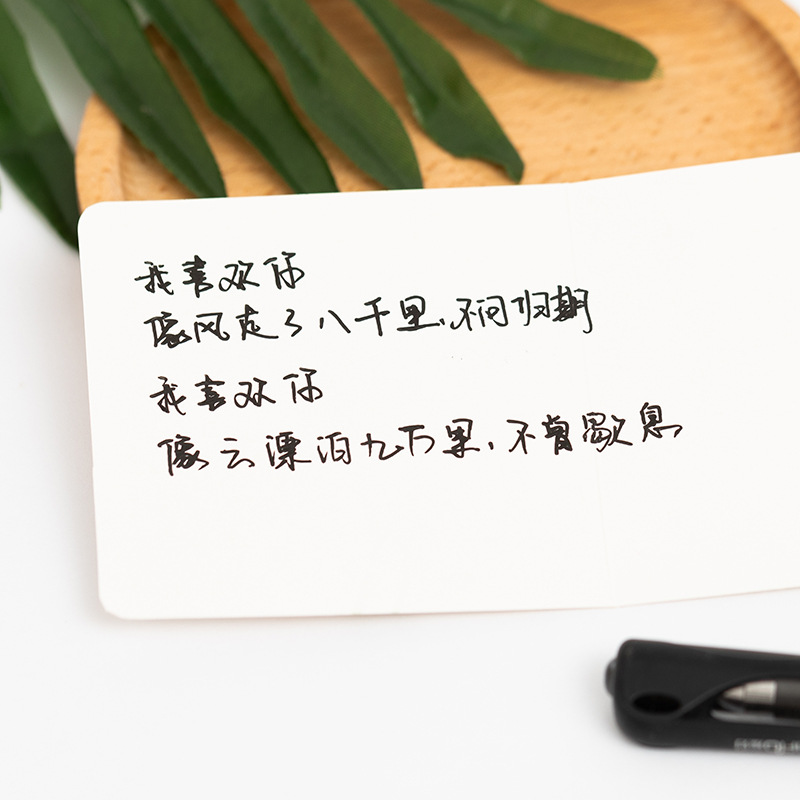 我喜欢你
像风走了八千里,不问归期
我喜欢你
像云漂泊九万里,不曾歇息